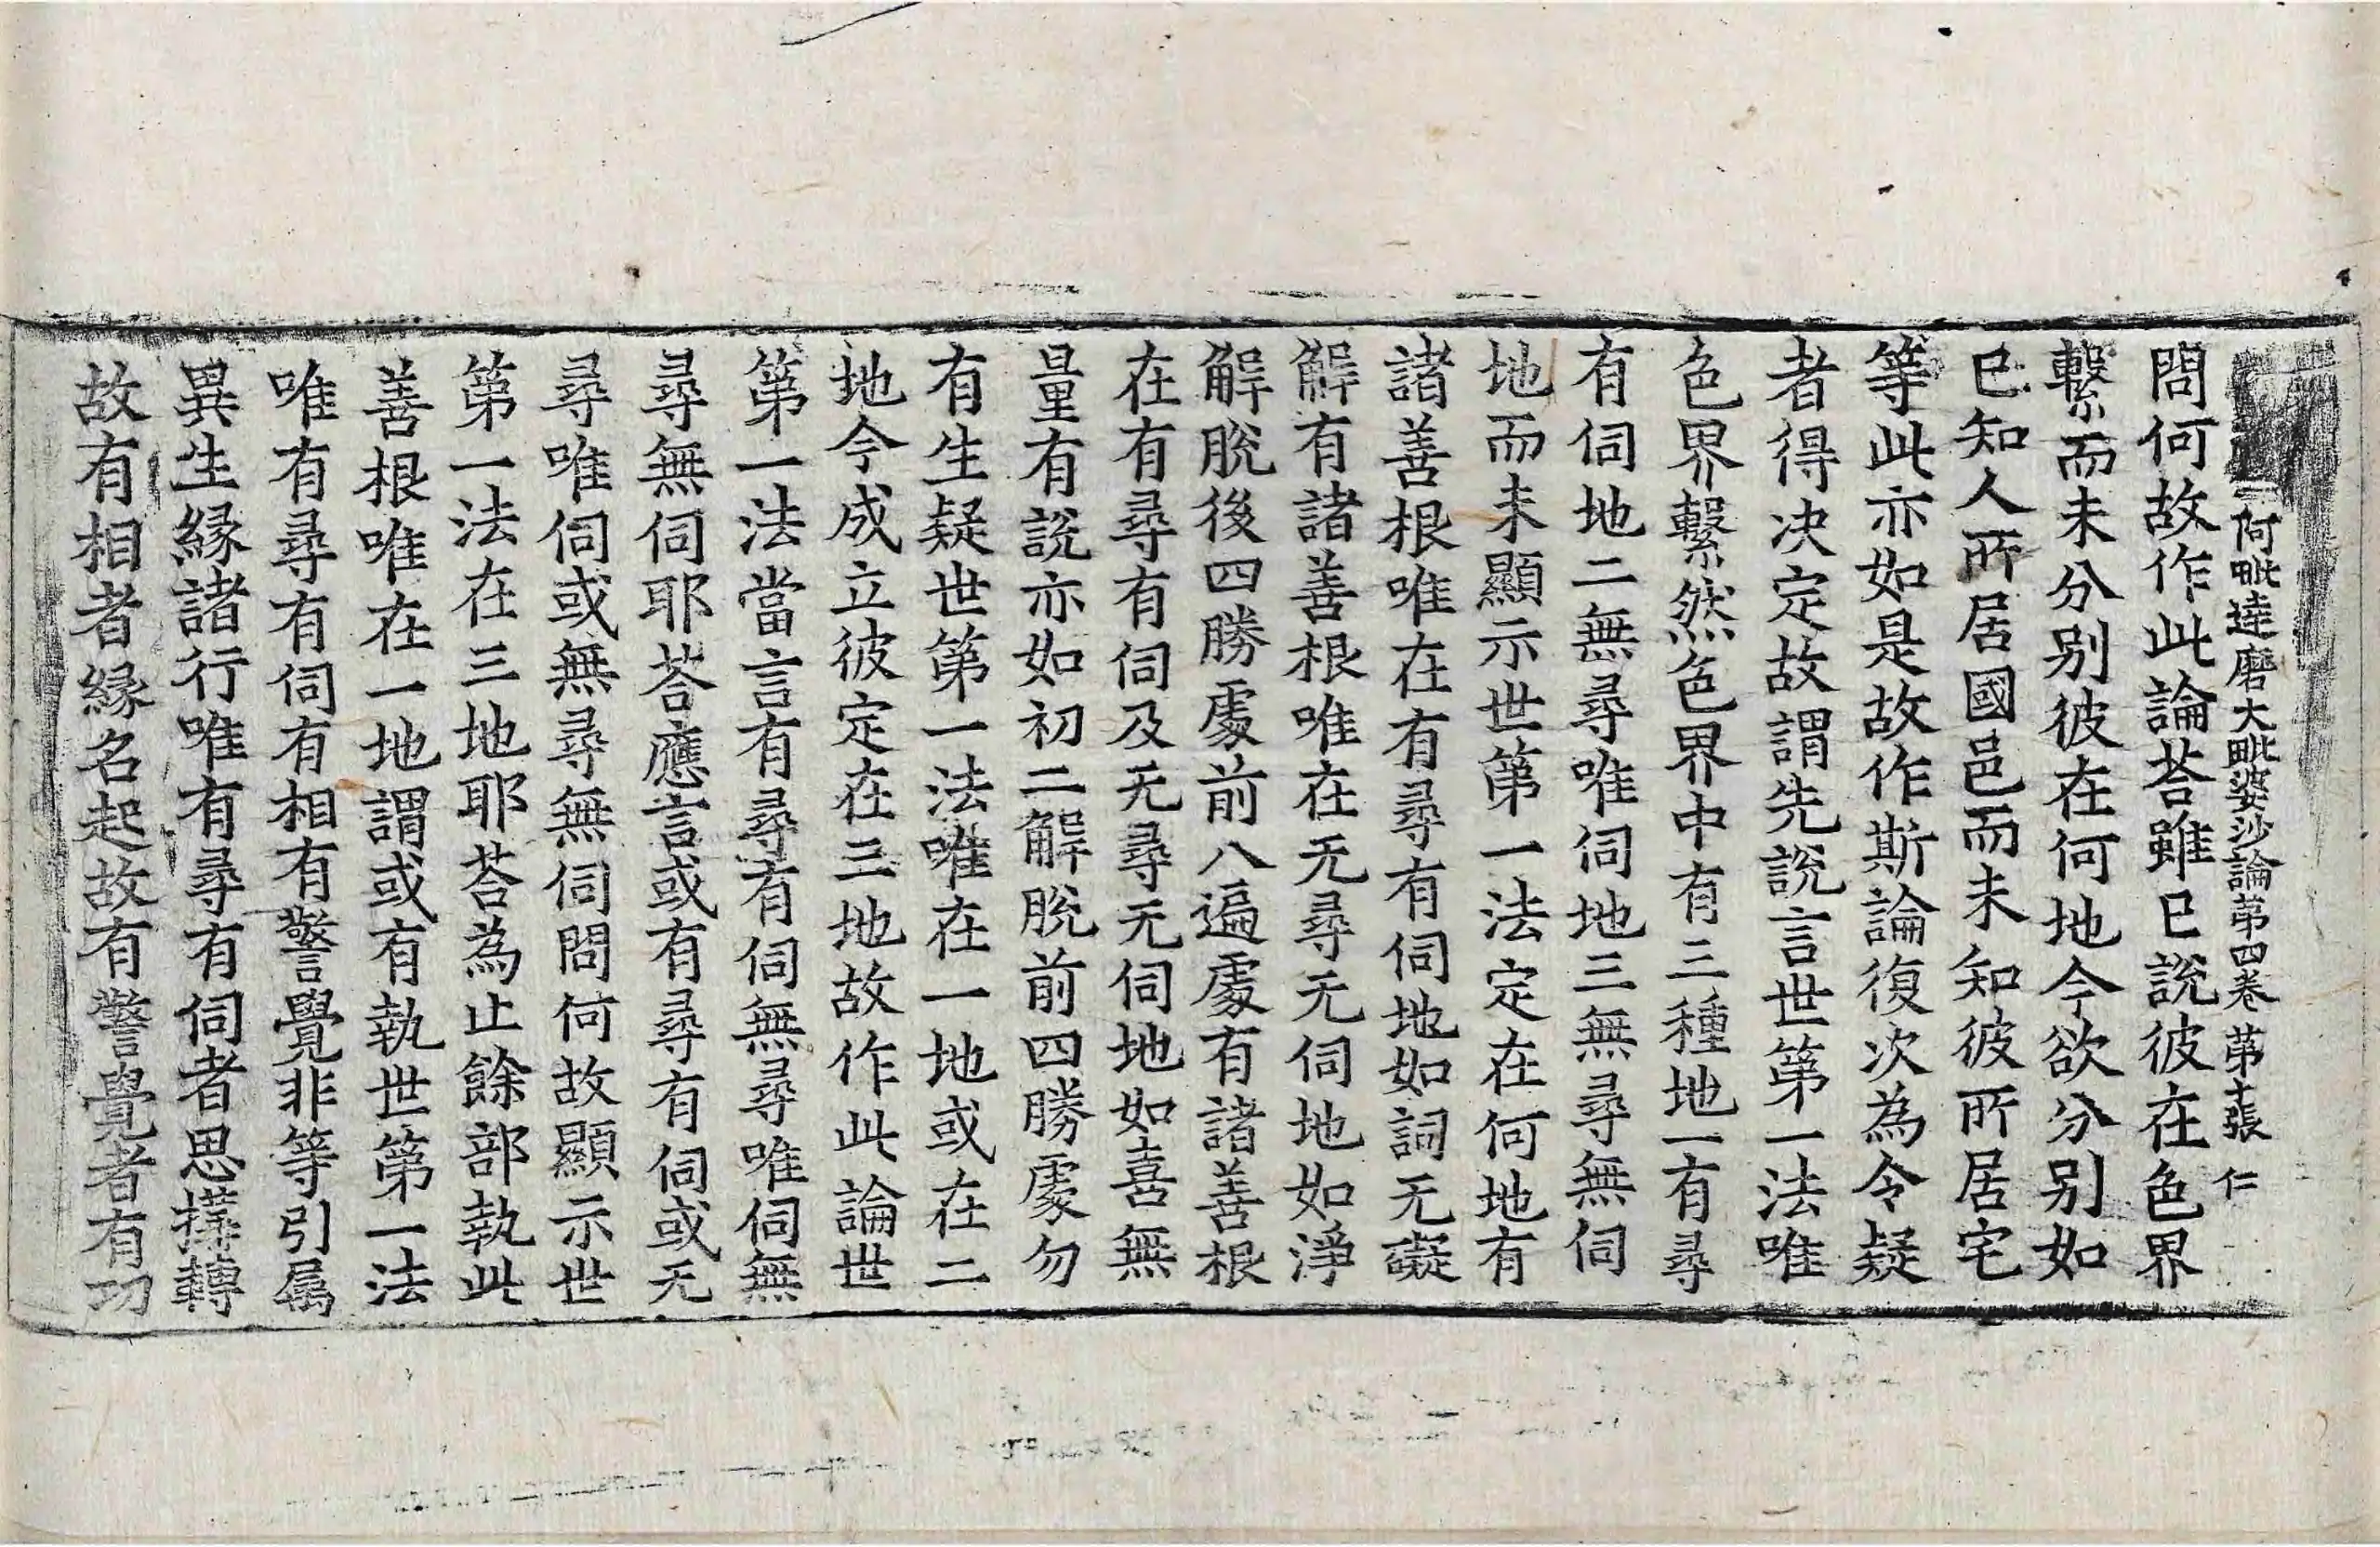 阿毗達磨大毗婆沙論第四卷 第十張 仁
問何故作此論荅雖已說彼在色界
繫而未分别彼在何地今欲分别如
已知人所居國邑而未知彼所居宅
等此亦如是故作斯論復次為令疑
者得决定故謂先說言世第一法唯
色界繫然色界中有三種地一有尋
有伺地二無尋唯伺地三無尋無伺
地而未顯示世第一法定在何地有
諸善根唯在有尋有伺地如詞无礙
解有諸善根唯在无尋无伺地如淨
解脫後四勝處前八遍處有諸善根
在有尋有伺及无尋无伺地如喜無
量有說亦如初二解脫前四勝處勿
有生疑世第一法唯在一地或在二
地今成立彼定在三地故作此論世
第一法當言有尋有伺無尋唯伺無
尋無伺耶荅應言或有尋有伺或无
尋唯伺或無尋無伺問何故顯示世
第一法在三地耶荅為止餘部執此
善根唯在一地謂或有執世第一法
唯有尋有伺有相有警覺非等引属
異生緣諸行唯有尋有伺者思擇轉
故有相者緣名起故有警覺者有功